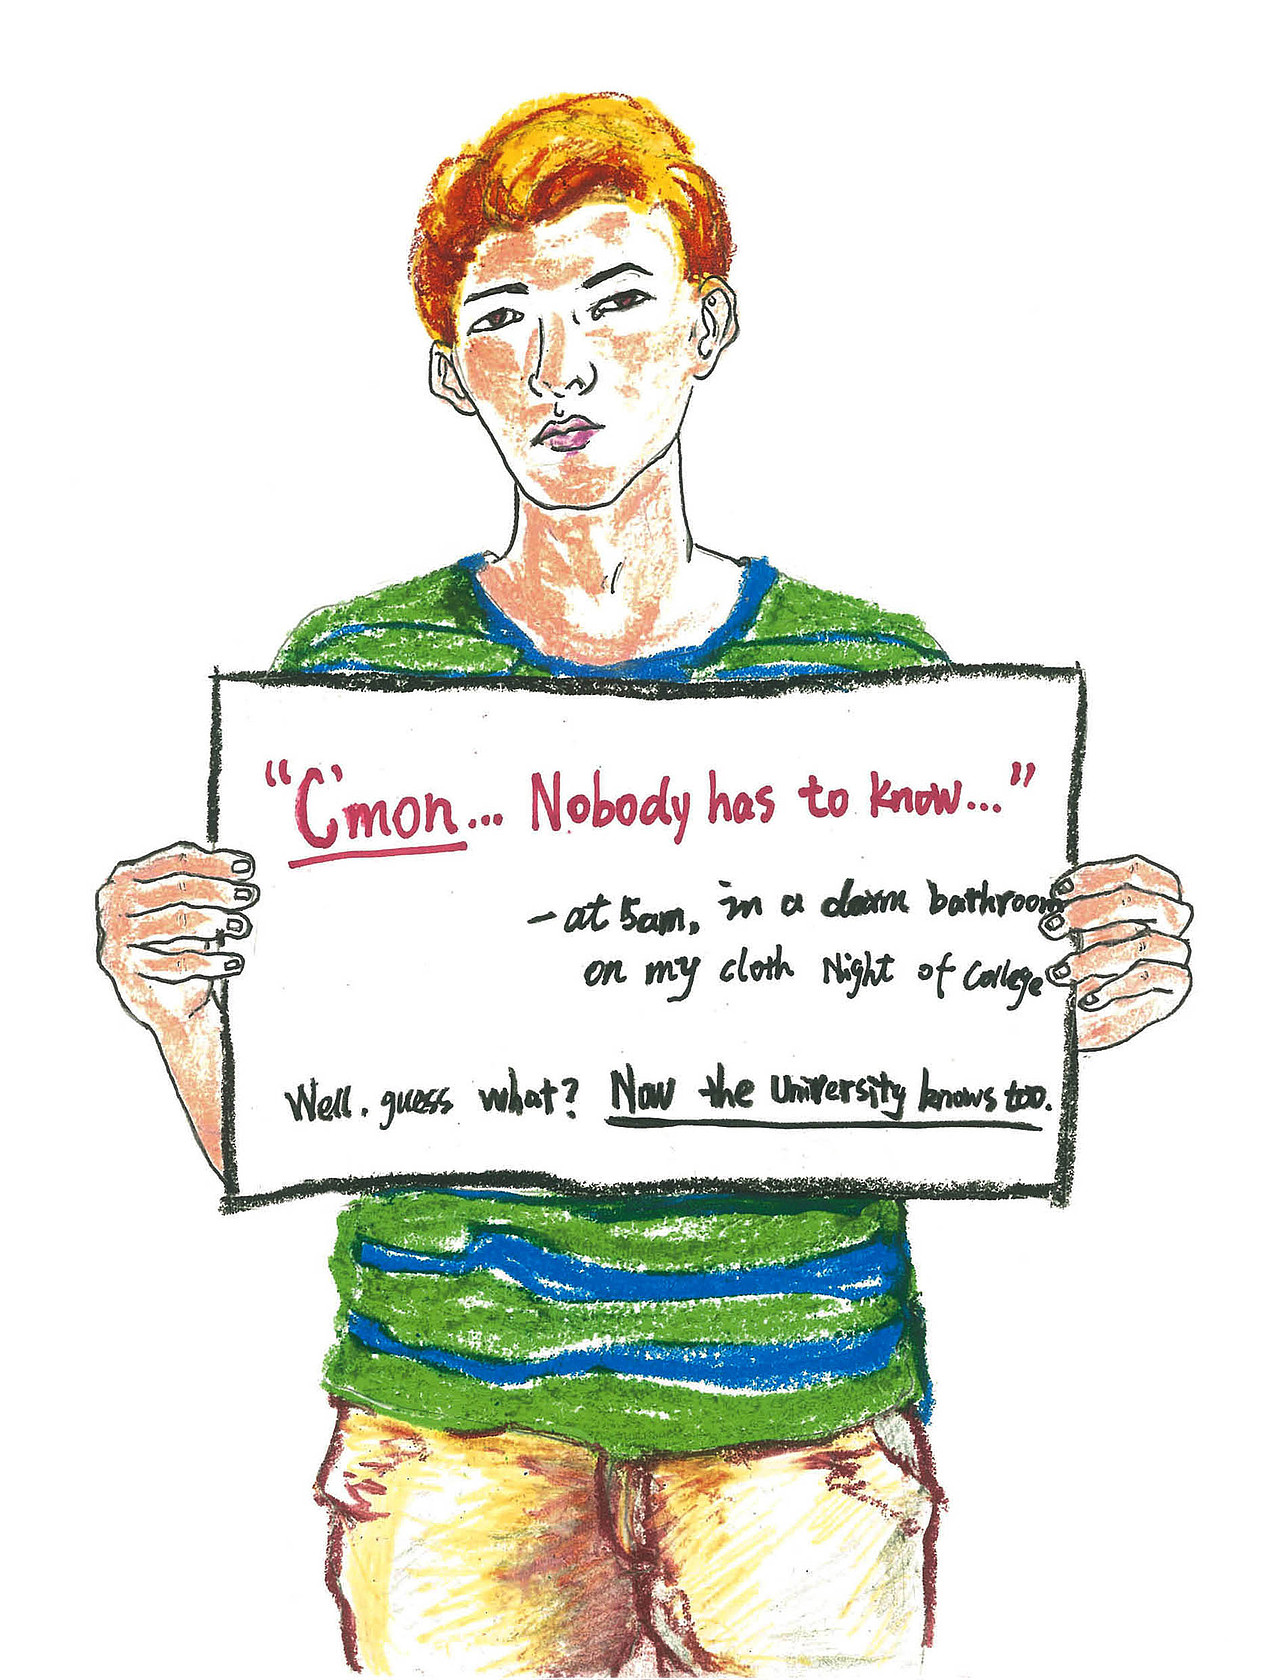 "C'mon... Nobody has to know..."
- at 5am, in a dorm bathroom
on my cloth Night of College
Well, guess what? Now the University knows too.